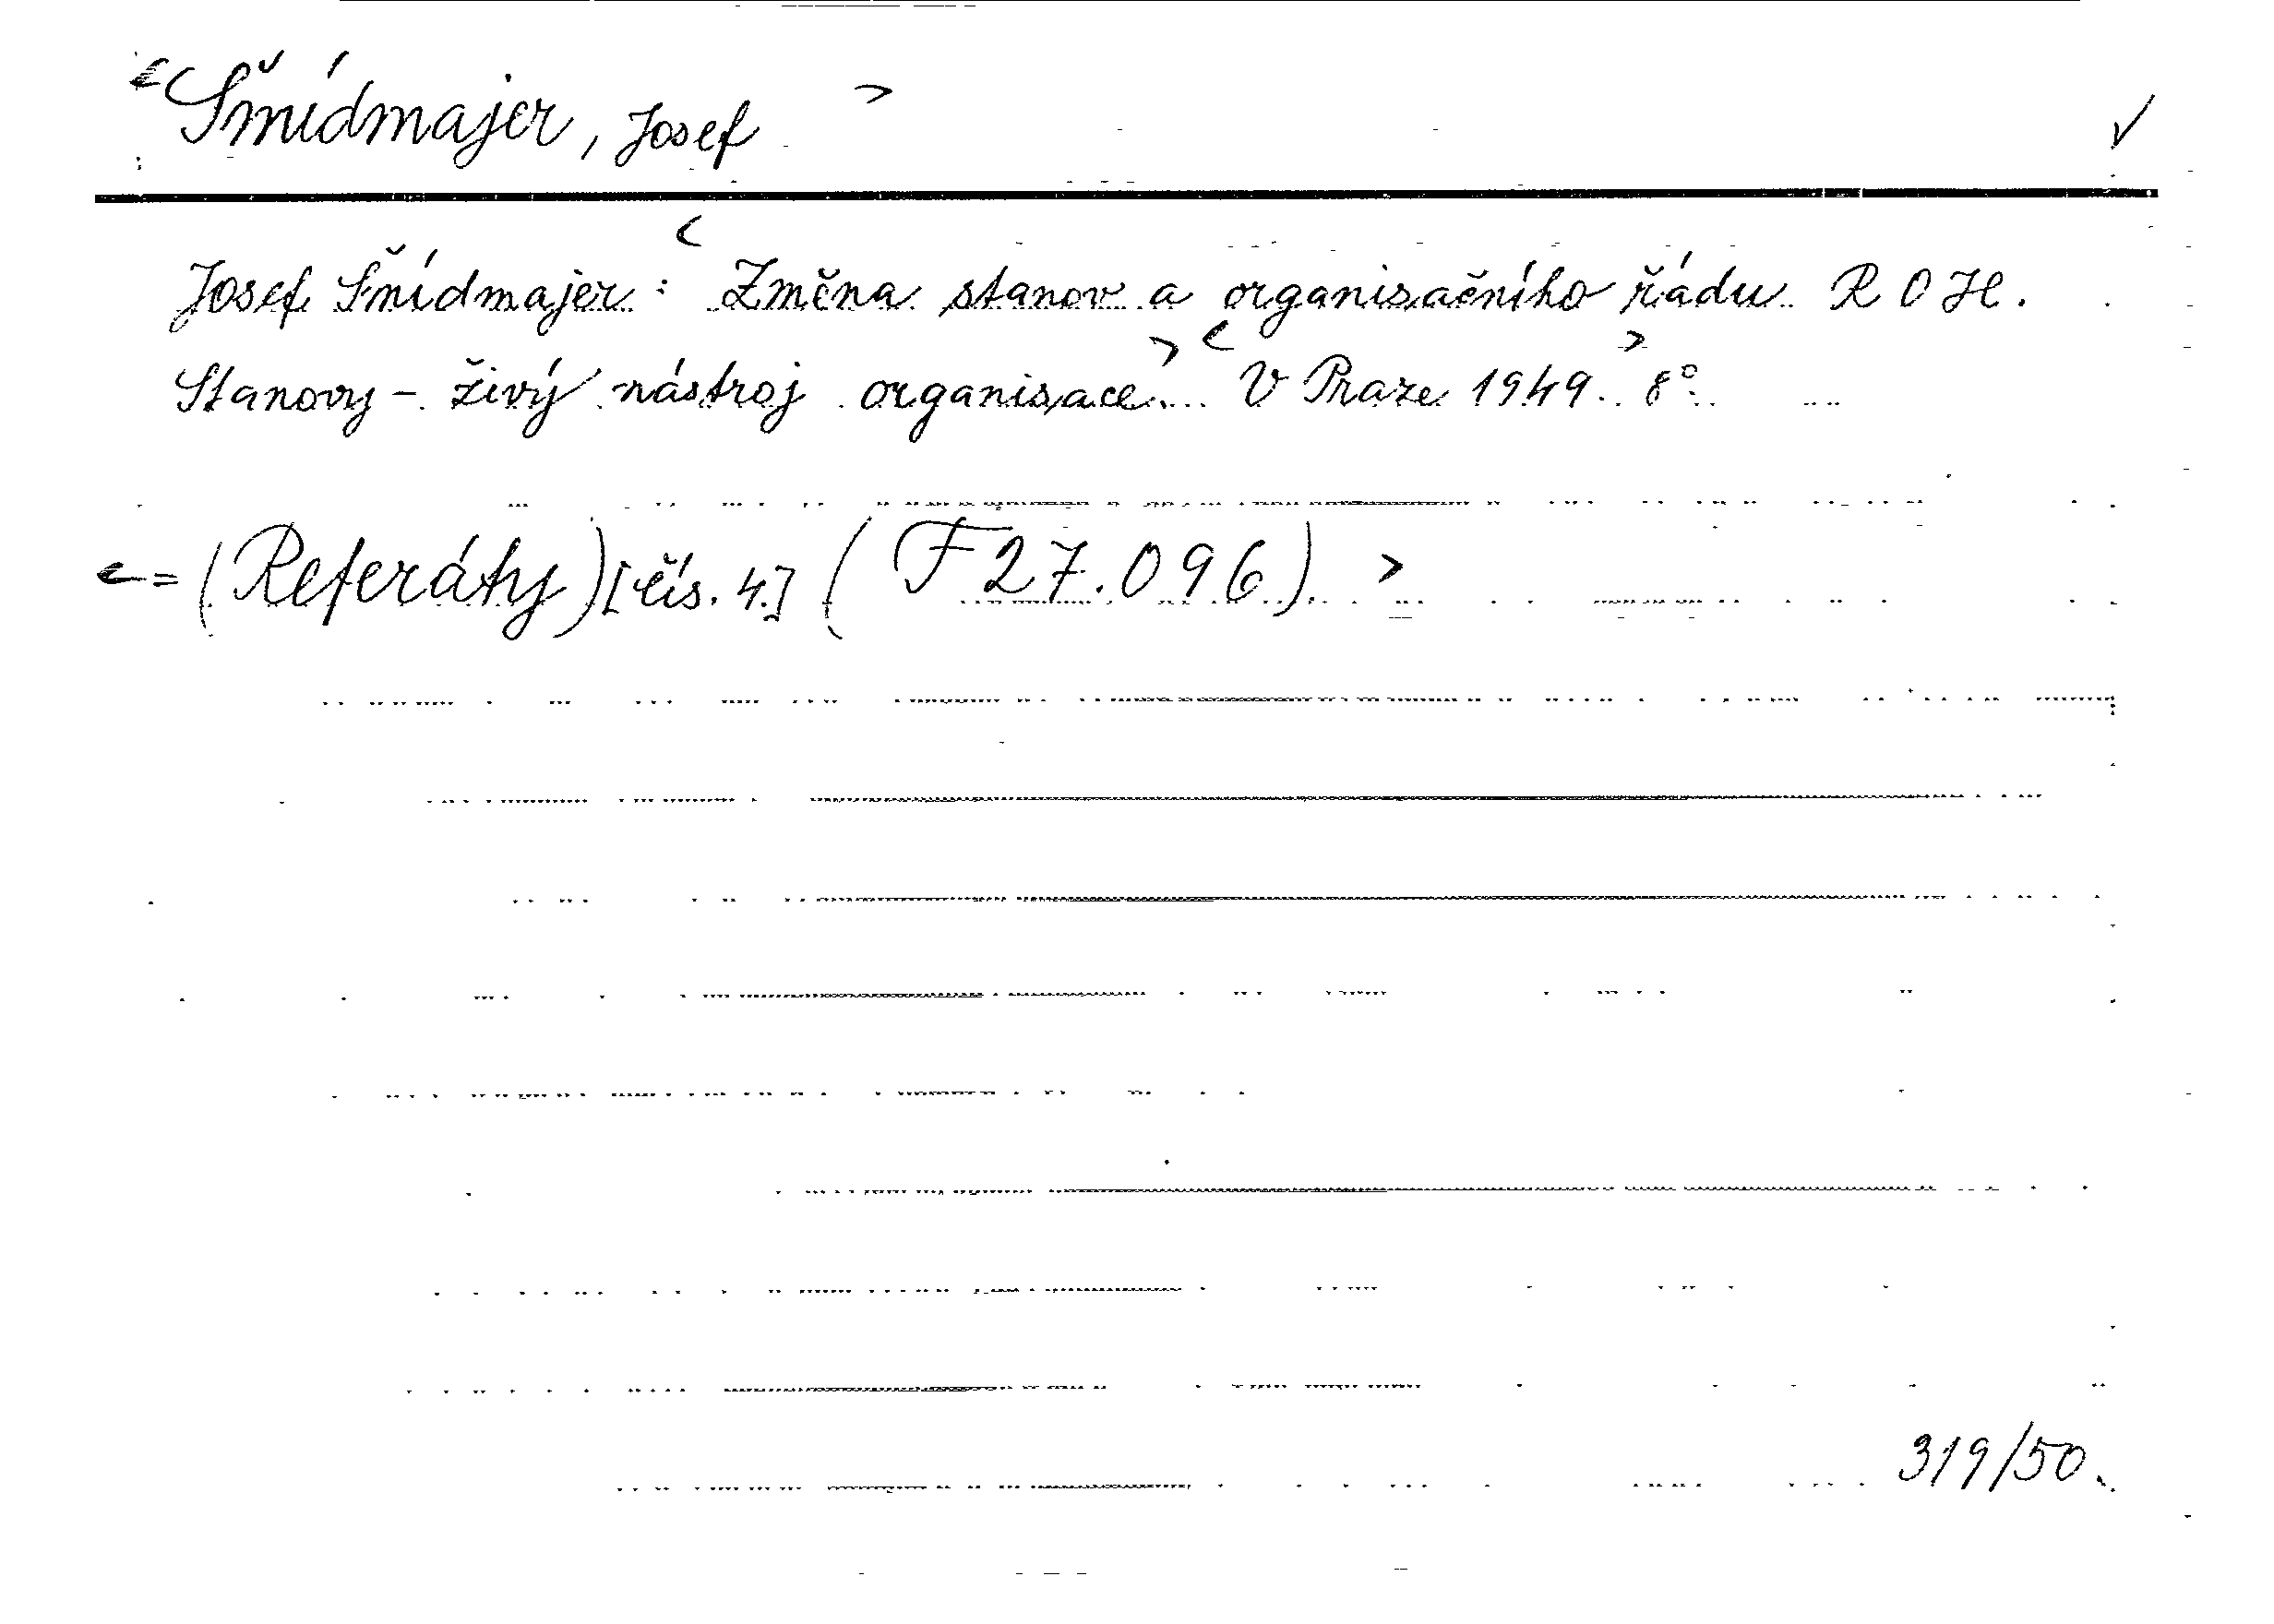 <Šmídmajer, Josef> ✓
Josef Šmídmajer: <Změna stanov a organisačního řádu R O H.
Stanovy - živý nástroj organisace.> <V Praze 1949.> 8°.
<= (Referáty) [čís. 4.] (F 27.096) >
319/50.